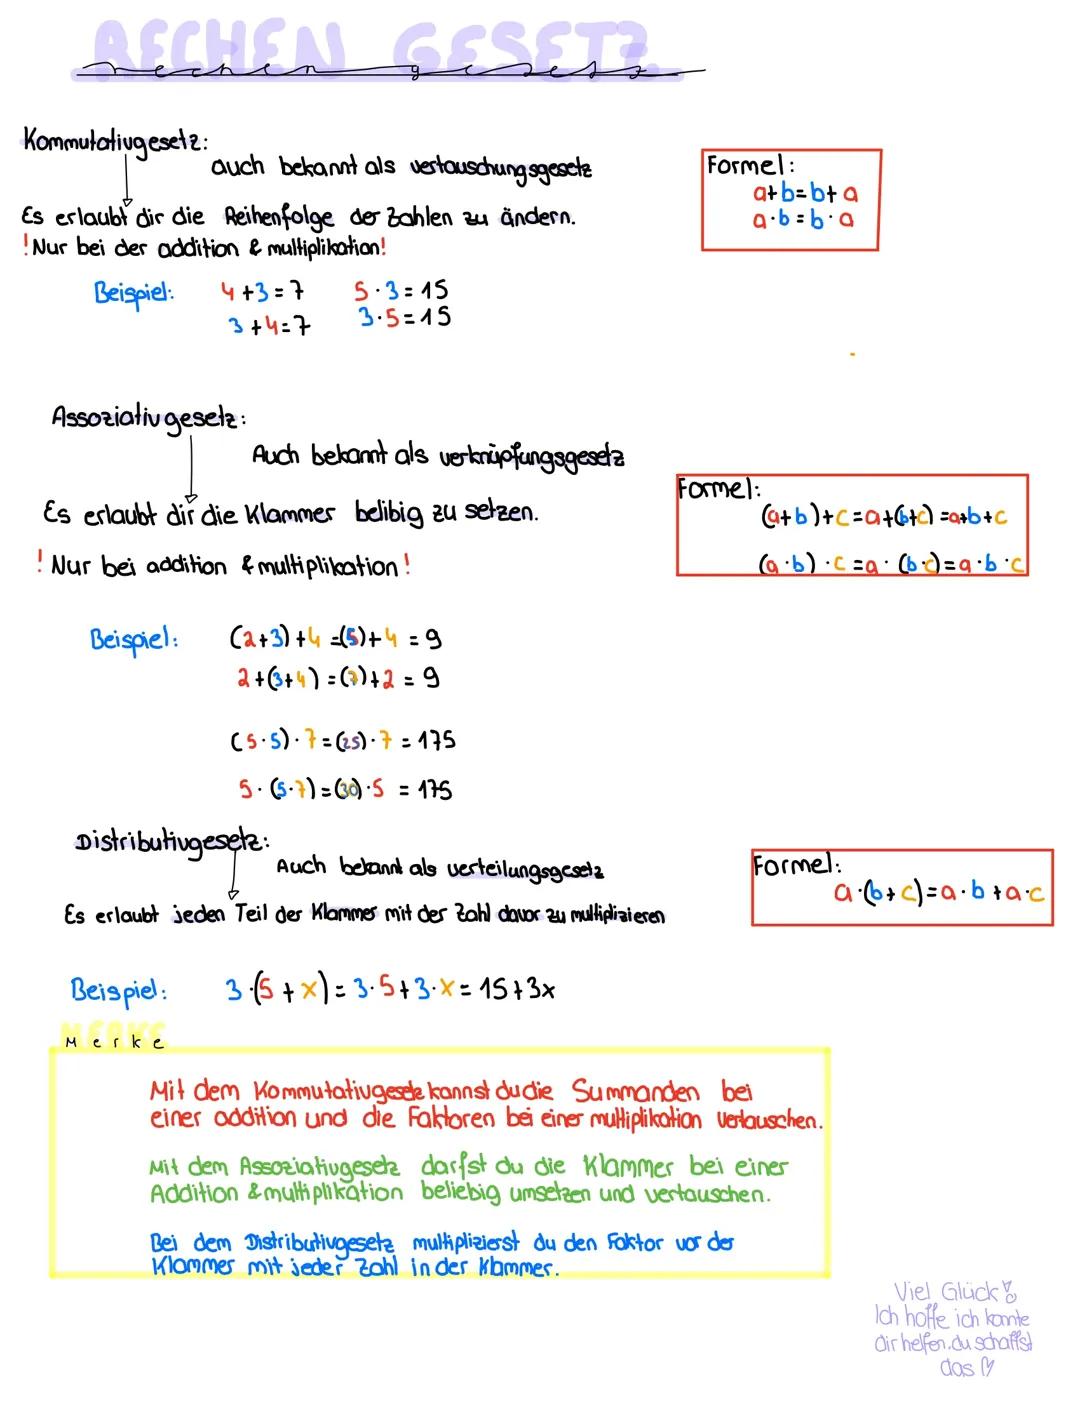 RECHEN GESETZ
rechen gesetz
Kommutativgesetz:
auch bekannt als vertauschungsgesetz
Es erlaubt dir die Reihenfolge der Zahlen zu ändern.
!Nur bei der addition & multiplikation!
Formel:
a+b=b+a
a·b=b·a
Beispiel: 4+3=7 5·3=15
3+4=7 3·5=15
Assoziativgesetz:
Auch bekannt als verknüpfungsgesetz
Es erlaubt dir die Klammer belibig zu setzen.
! Nur bei addition & multiplikation!
Formel:
(a+b)+c=a+(b+c)=a+b+c
(a·b)·c=a·(b·c)=a·b·c
Beispiel: (2+3)+4=(5)+4=9
2+(3+4)=(7)+2=9
(5·5)·7=(25)·7=175
5·(5·7)=(30)·5=175
Distributivgesetz:
Auch bekannt als verteilungsgesetz
Es erlaubt jeden Teil der Klammer mit der Zahl davor zu multiplizieren
Formel:
a·(b+c)=a·b+a·c
Beispiel: 3·(5+x)=3·5+3·x=15+3x
MERKE
Merke
Mit dem Kommutativgesetz kannst du die Summanden bei
einer addition und die Faktoren bei einer multiplikation vertauschen.
Mit dem Assoziativgesetz darfst du die Klammer bei einer
Addition & multiplikation beliebig umsetzen und vertauschen.
Bei dem Distributivgesetz multiplizierst du den Faktor vor der
Klammer mit jeder Zahl in der Klammer.
Viel Glück!
Ich hoffe ich konnte
dir helfen.du schaffst
das